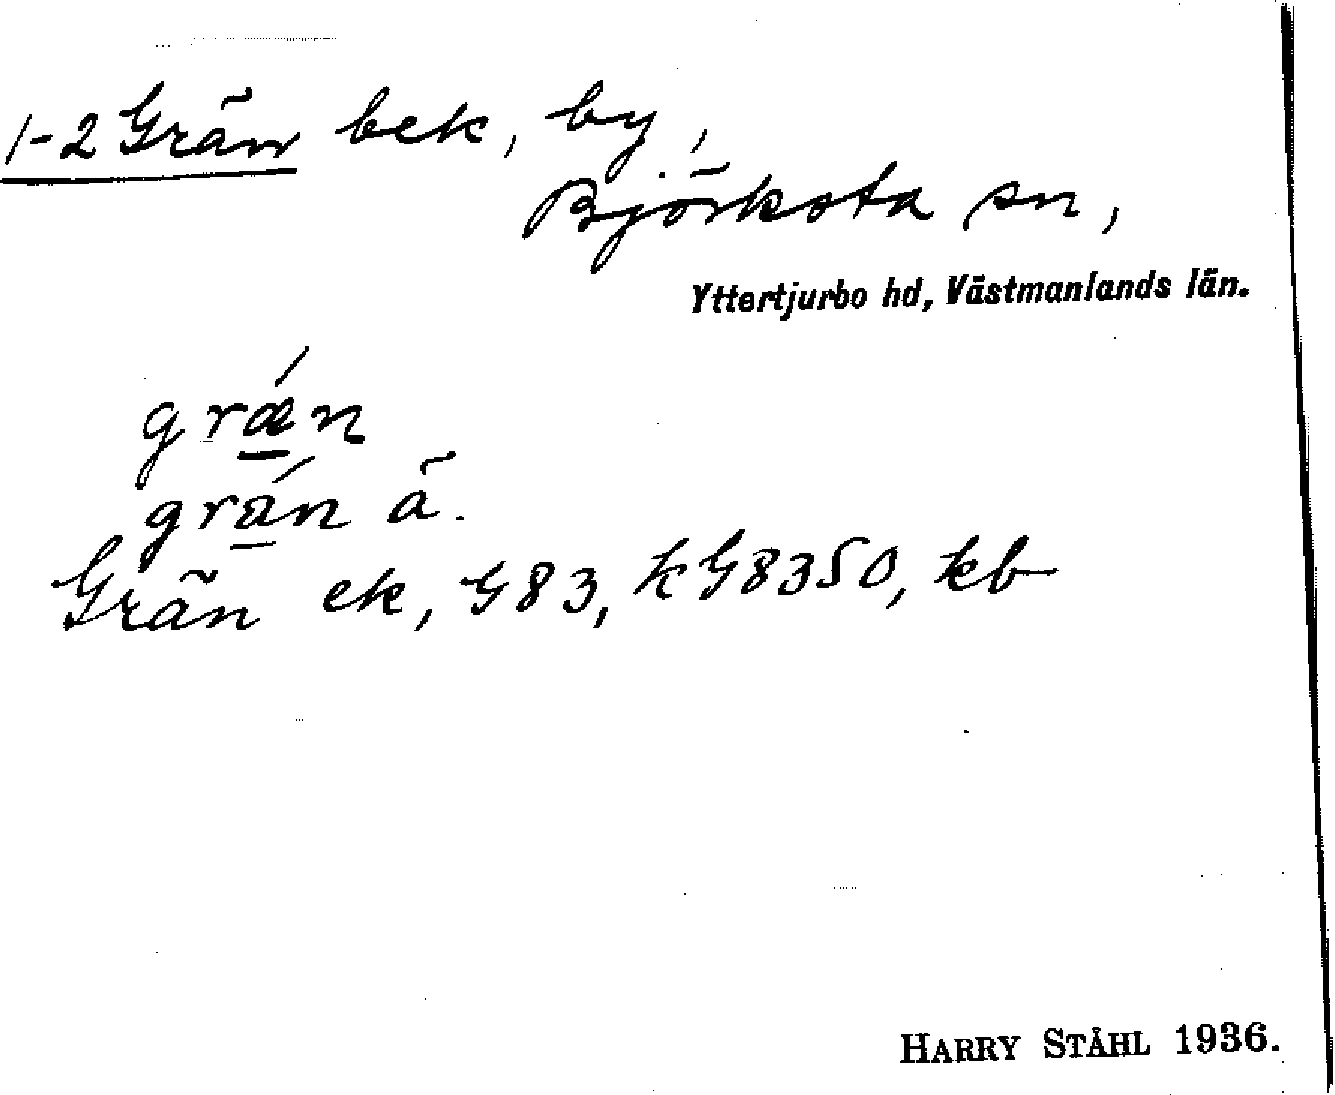 1-2 Grän bek, by,
Björksta sn,
Yttertjurbo hd, Västmanlands län.
grǽ̱n
grä̱́n ä.
Grän ek, G83, kG8350, kb
HARRY STÅHL 1936.